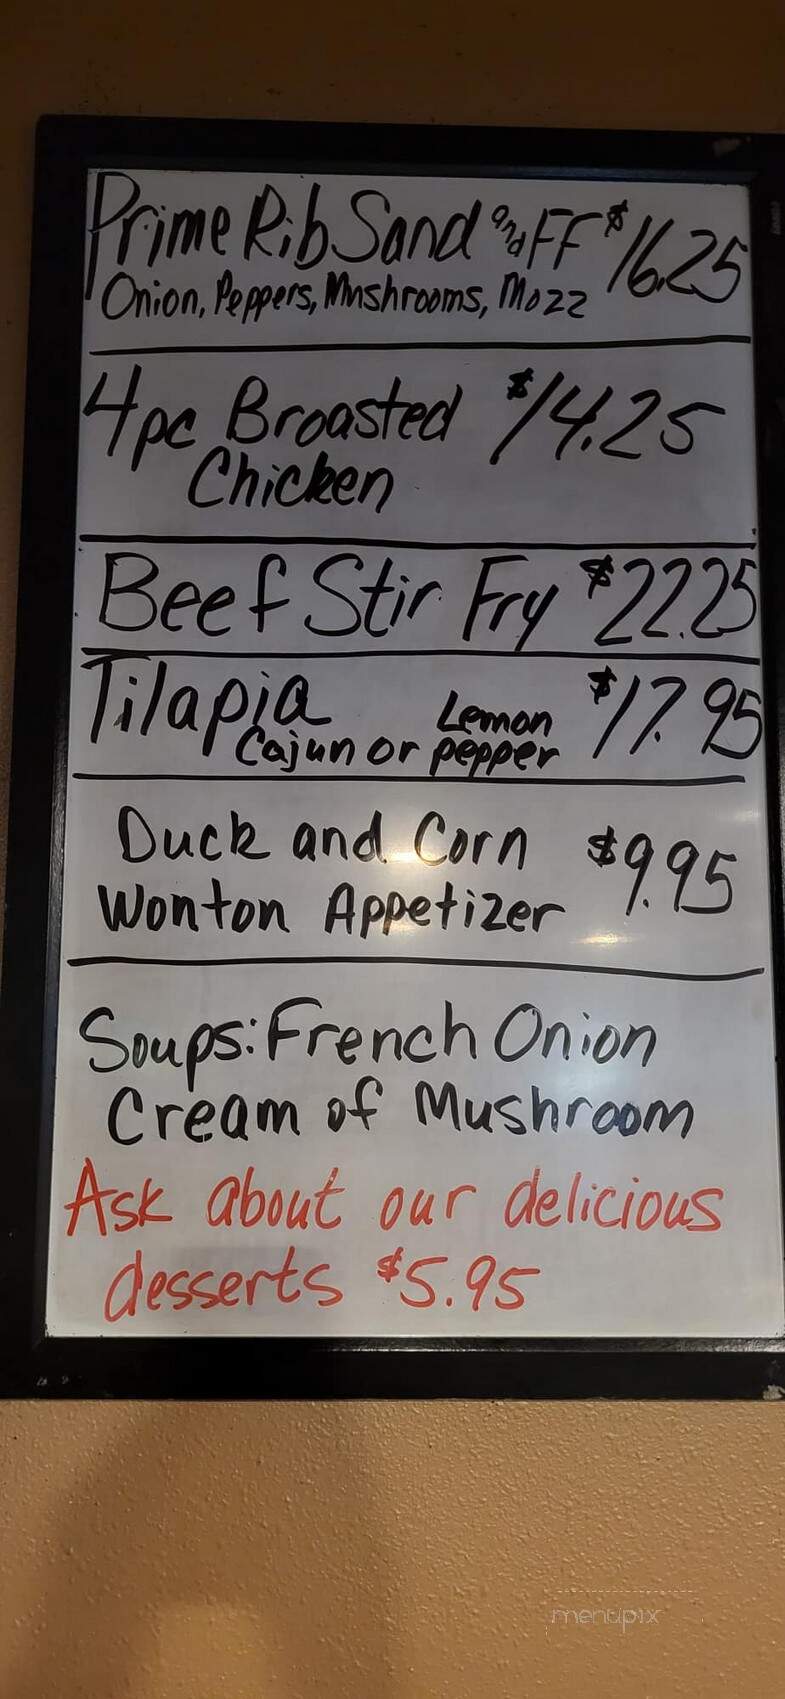 Prime Rib Sand and FF $16.25
Onion, Peppers, Mushrooms, Mozz
4pc Broasted $14.25
Chicken
Beef Stir Fry $22.25
Tilapia Lemon $17.95
Cajun or pepper
Duck and Corn $9.95
Wonton Appetizer
Soups: French Onion
Cream of Mushroom
Ask about our delicious
desserts $5.95
menupix